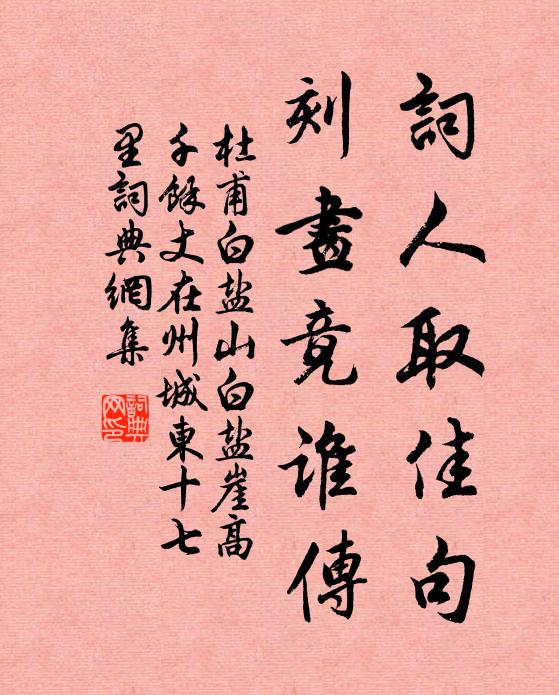 詞人取佳句
刻畫竟誰傳
杜甫白盐山白盐崖高
千餘丈在州城東十七
里詞典網集
詞典
网印